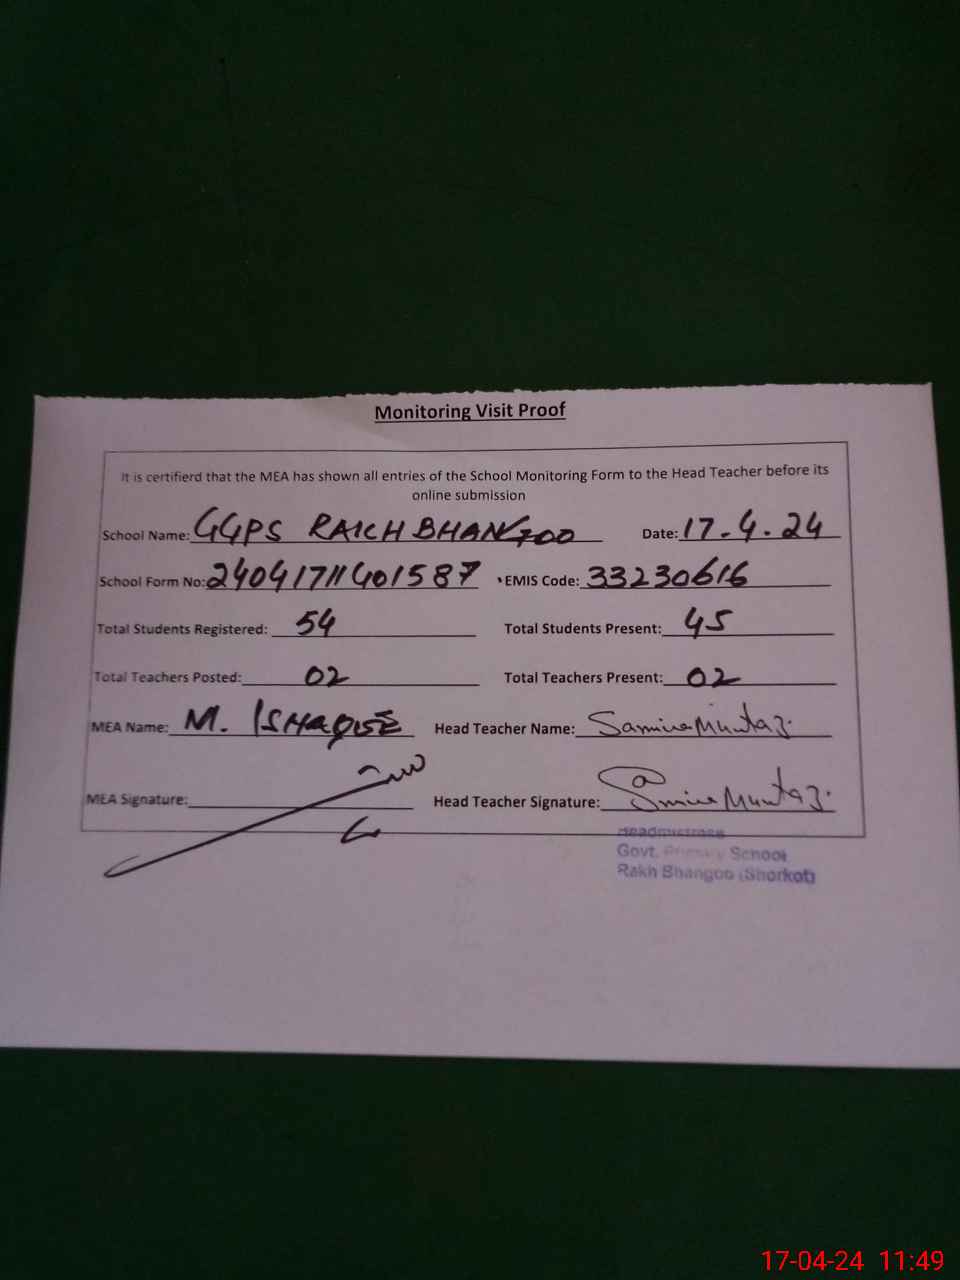 Monitoring Visit Proof
It is certifierd that the MEA has shown all entries of the School Monitoring Form to the Head Teacher before its
online submission
School Name: GGPS RAKH BHANGOO Date: 17.4.24
School Form No: 24041711401587 EMIS Code: 33230616
Total Students Registered: 54 Total Students Present: 45
Total Teachers Posted: 02 Total Teachers Present: 02
MEA Name: M. ISHAQUE Head Teacher Name: Samina Mumtaz.
MEA Signature: Head Teacher Signature: Samina Mumtaz.
Headmistress
Govt. Primary School
Rakh Bhangoo (Shorkot)
17-04-24 11:49